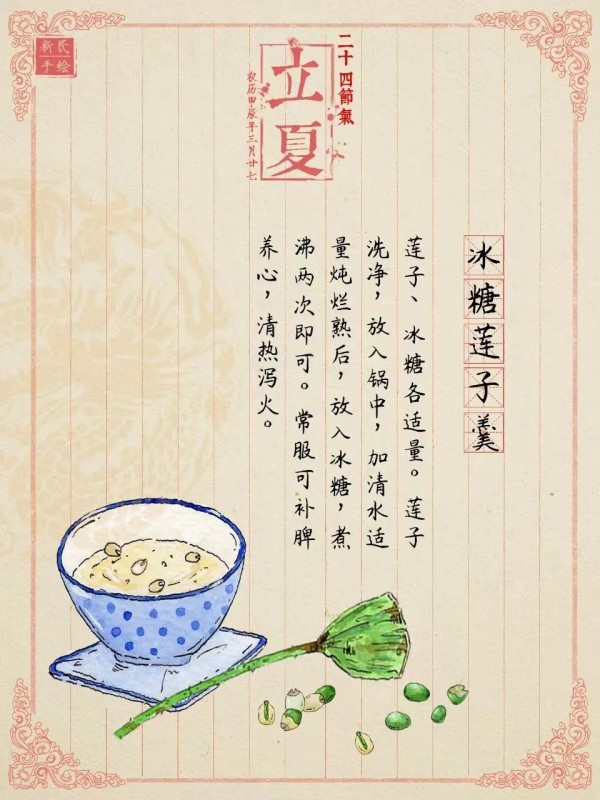 新民
手绘
二十四節氣
立夏
农历甲辰年三月廿七
冰糖莲子羹
莲子、冰糖各适量。莲子
洗净，放入锅中，加清水适
量炖烂熟后，放入冰糖，煮
沸两次即可。常服可补脾
养心，清热泻火。